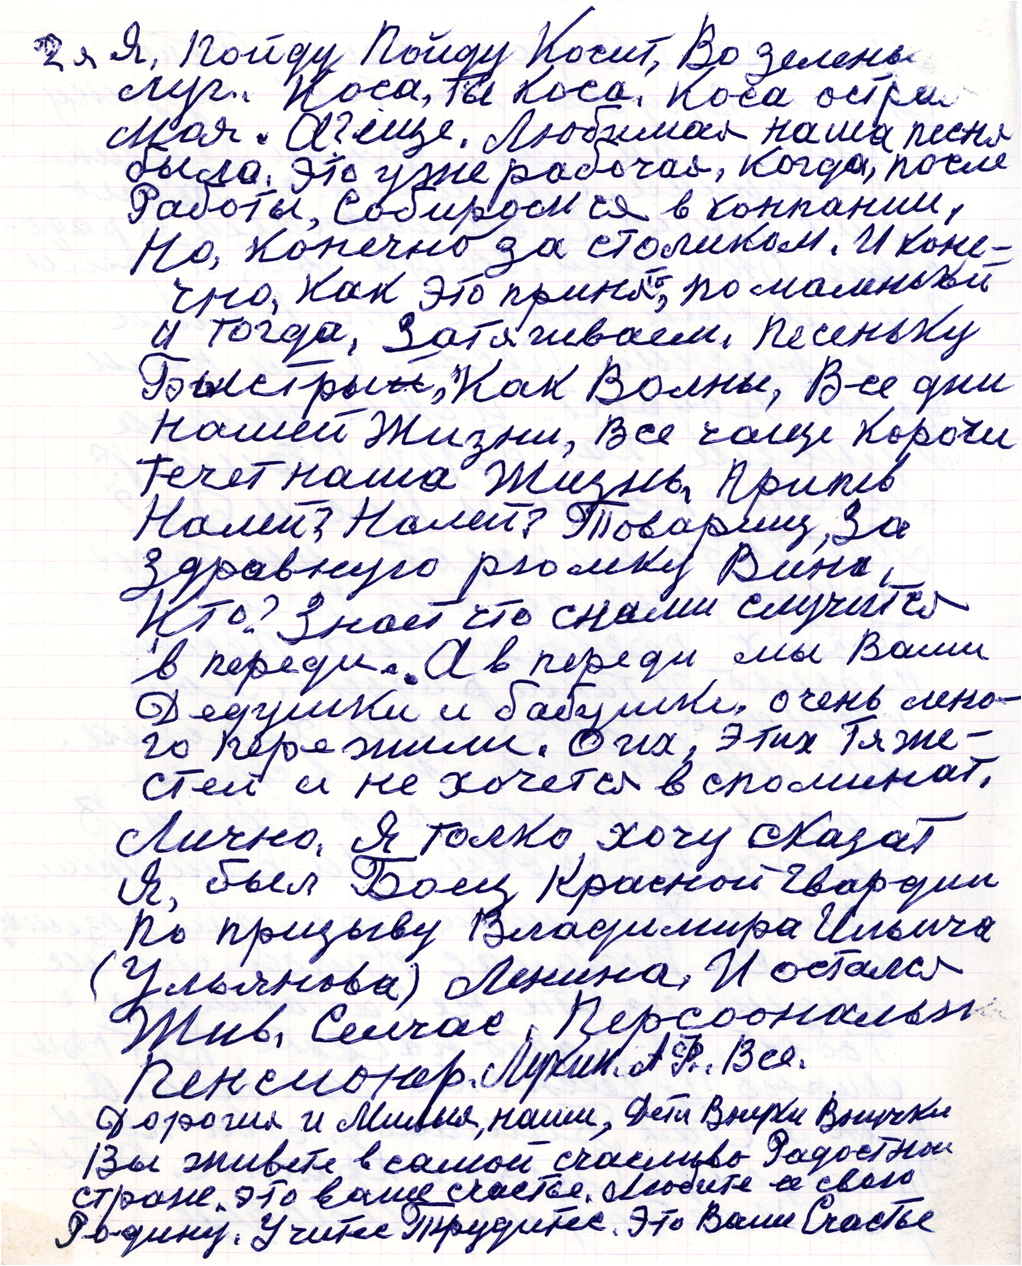 2я Я, Пойду Пойду Косит, Во зелены
Луг.. Коса, ты коса. Коса острая
Моя. А? еще. Любимая наша песня
была. Это уже рабочая, когда, после
Работы, Собиромся в конпании,
Но, конечно за столиком. И коне-
чно, как это принято, по маленькой
и тогда, Затягиваем. песеньку
Быстры, "Как Волны, Все дни
нашей Жизни, все чаще короче
течет наша Жизнь. Припев
Налей? Налей? Товарищ, За
здравную рюмку Вина,
Кто? Знает что снами случится
в переди.. А в переди мы Ваши
Дедушки и бабушки. очень мно-
го пережили. О их, этих тяже-
стей и не хочется вспоминат.
Лично. Я толко, хочу сказат
Я, был Боец Красной Гвардии
по призыву Владимира Ильича
(Ульянова) Ленина. И остался
Жив. Сейчас, Персоональн
Пенсионер. Лукин. А Ф.. Все.
Дорогия и Милыя, наши, Дети Внуки Внучки
Вы живете в самой счасливо Радостной
стране. это ваше счастье. Любите и свою
Родину. Учитес Трудитес. Это Ваши Счастье